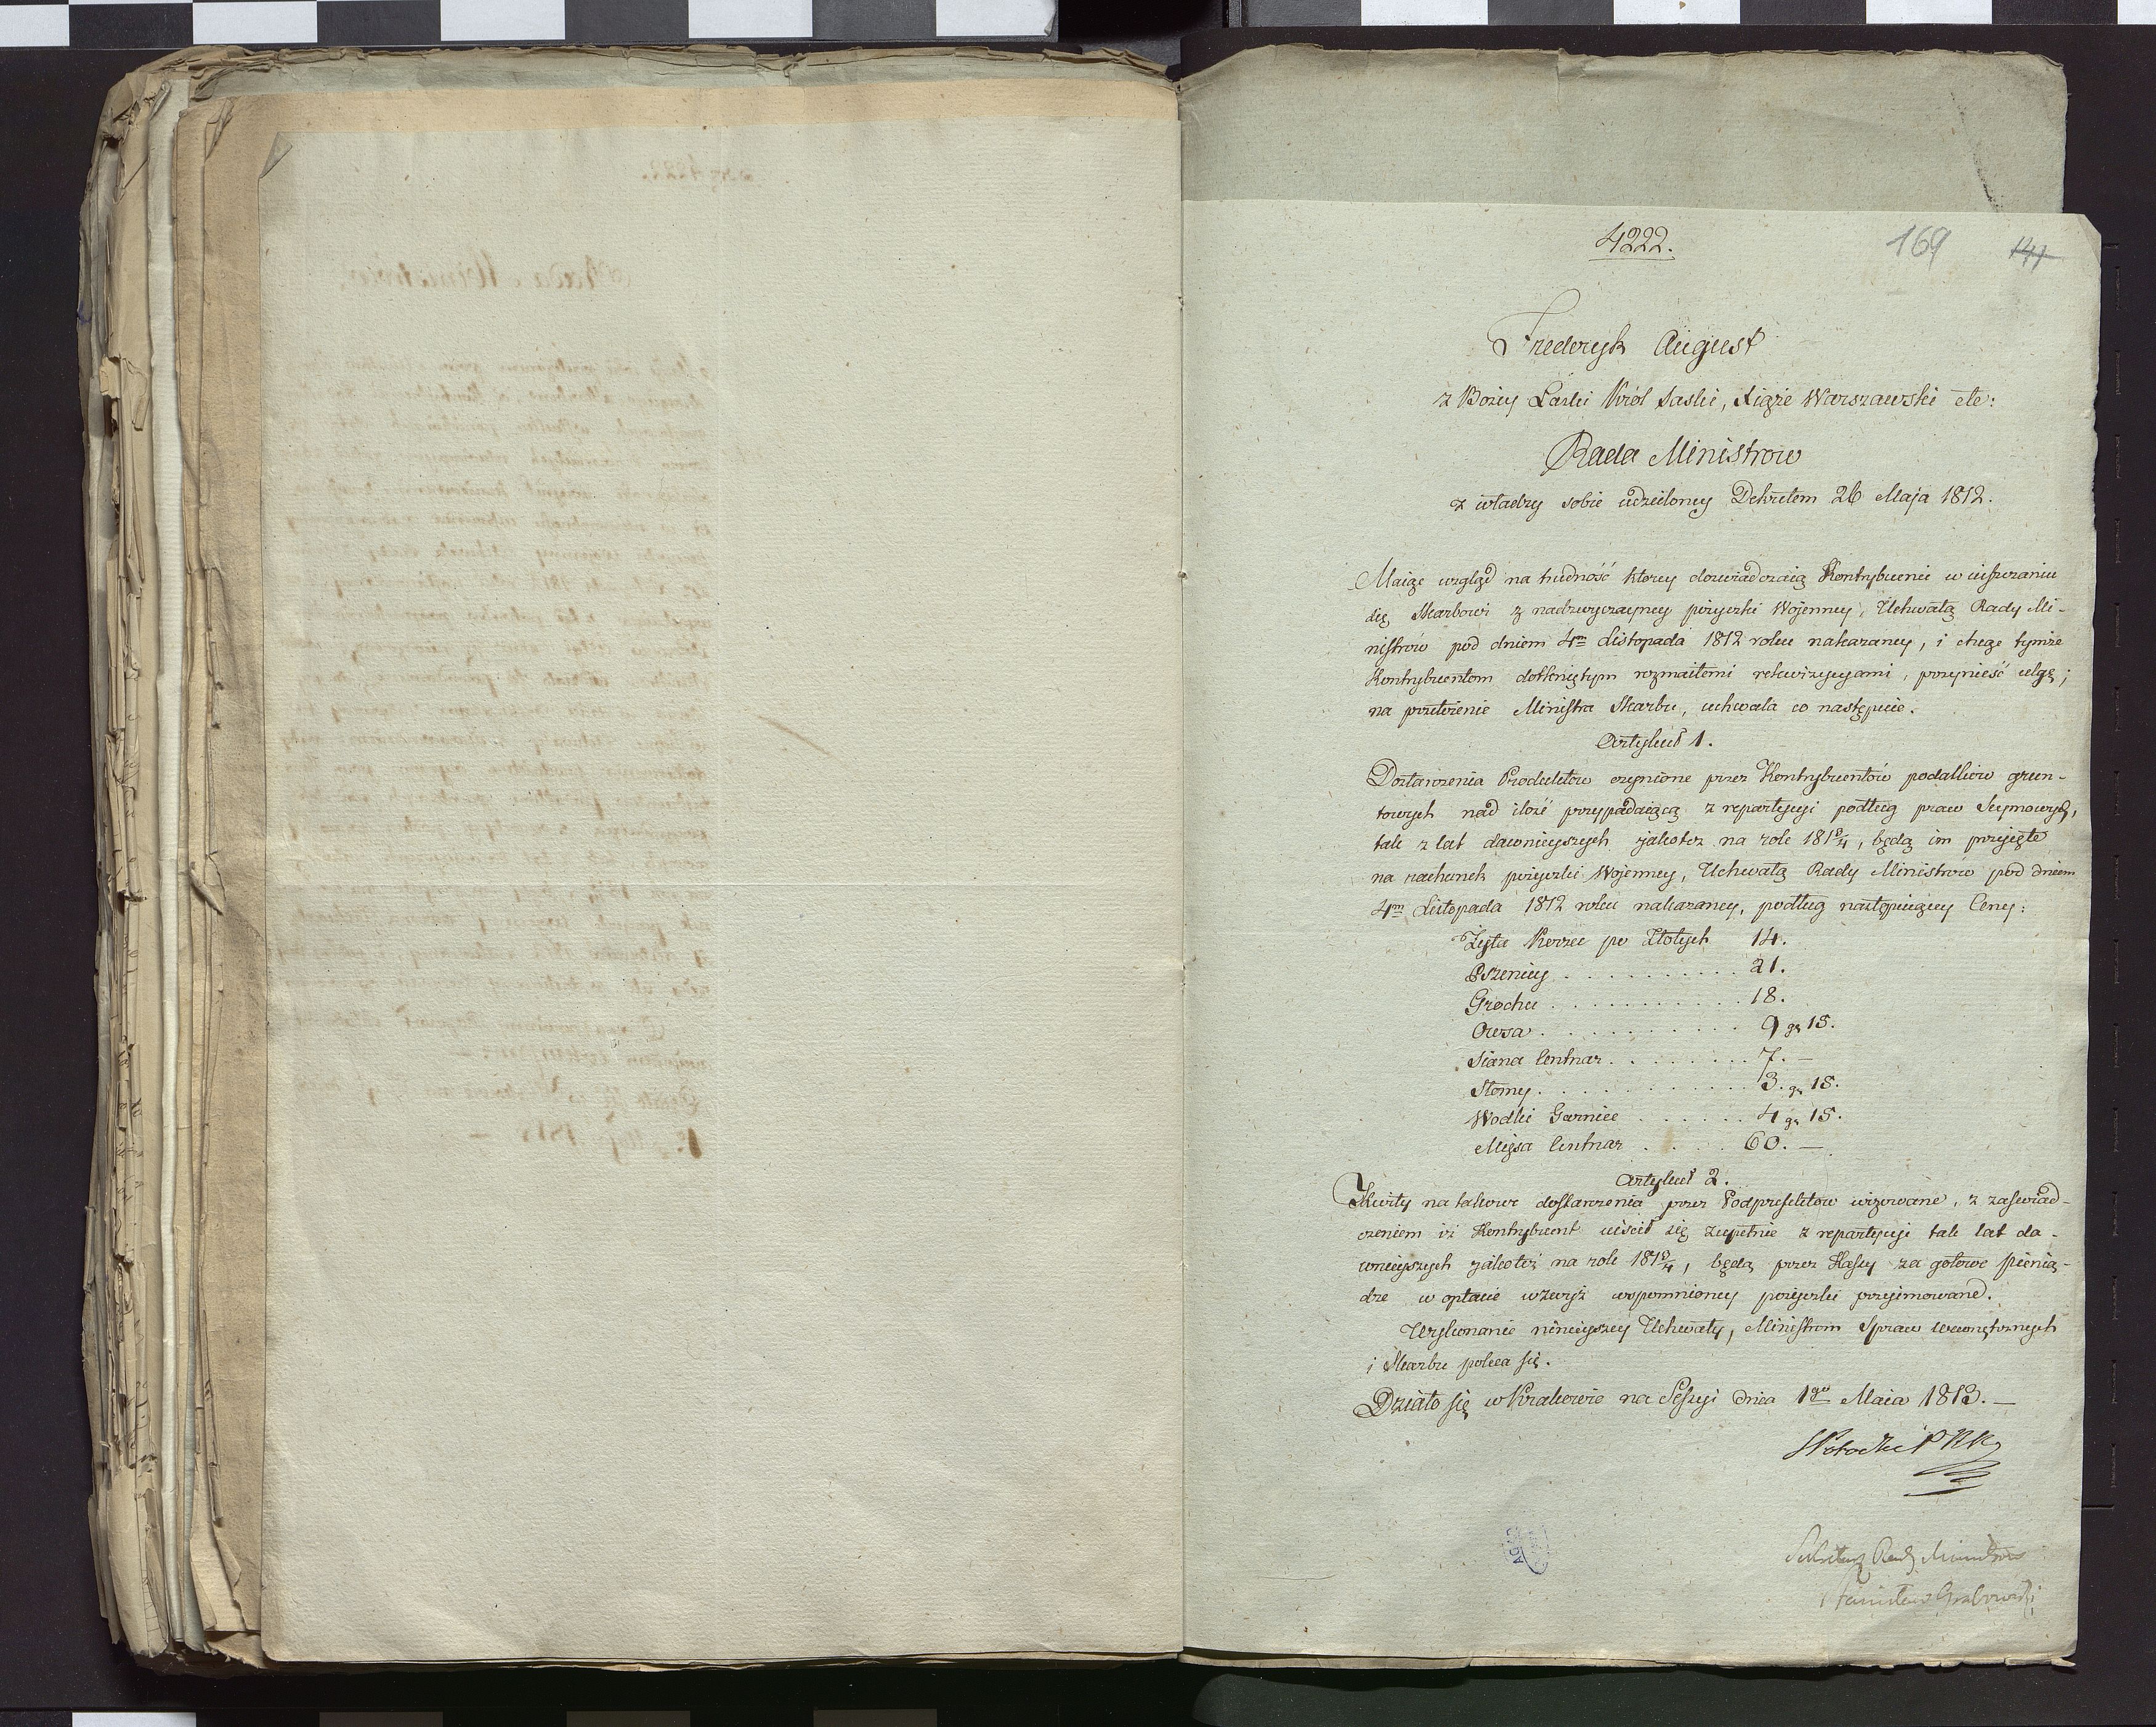 4222.
169 141
Frederyk August
z Bożey Łaski Król Saski, Xiąże Warszawski etc:
Rada Ministrow
z władzy sobie udzieloney Dekretem 26 Maja 1812.
Maiąc wzgląd na trudność ktorey doswiadczaią Kontrybuenci w uiszczaniu
się Skarbowi z nadzwyczayney pożyczki Wojenney, Uchwałą Rady Mi-
nistrów pod dniem 4m Listopada 1812 roku nakazaney, i chcąc tymże
Kontrybuentom dotkniętym rozmaitemi rekwizycyami, przynieść ulgę;
na przełożenie Ministra Skarbu, uchwala co następuie.
Artykuł 1.
Dostarczenia Produktow czynione przez Kontrybuentów podatkow grun-
towych nad ilość przypadaiącą z repartycyi podług praw Seymowych,
tak z lat dawnieyszych jakotez na rok 1813/4, będą im przyjęte
na rachunek pożyczki Wojenney, Uchwałą Rady Ministrów pod dniem
4m Listopada 1812 roku nakazaney, podług następuiącey Ceny:
Żyta Korzec po Złotych 14.
Pszenicy . . . . . . . . . . . 21.
Grochu . . . . . . . . . . . 18.
Owsa . . . . . . . . . . . 9 gr 15.
Siana Centnar . . . . . . . . 7. —
Słomy . . . . . . . . . . . . 3. gr 15.
Wodki Garniec . . . . . . 4 gr 15.
Mięsa Centnar . . . . 60. —
Artykuł 2.
Kwity na takowe dostarczenia przez Podprefektow wizowane, z zaswiad-
czeniem iż Kontrybuent uiścił się zupełnie z repartycyi tak lat da-
wnieyszych jakoteż na rok 1813/4, będą przez Kassy za gotowe pienią-
dze w opłacie wzwyż wspomnioney pożyczki przyimowane.
Wykonanie ninieyszey Uchwały, Ministrom Spraw Wewnętrznych
i Skarbu poleca się.
Działo się w Krakowie na Sessyi dnia 1go Maia 1813. —
SPotocki P RK
Sekretarz Rady Ministrów
Stanisław Grabowski
AGAD